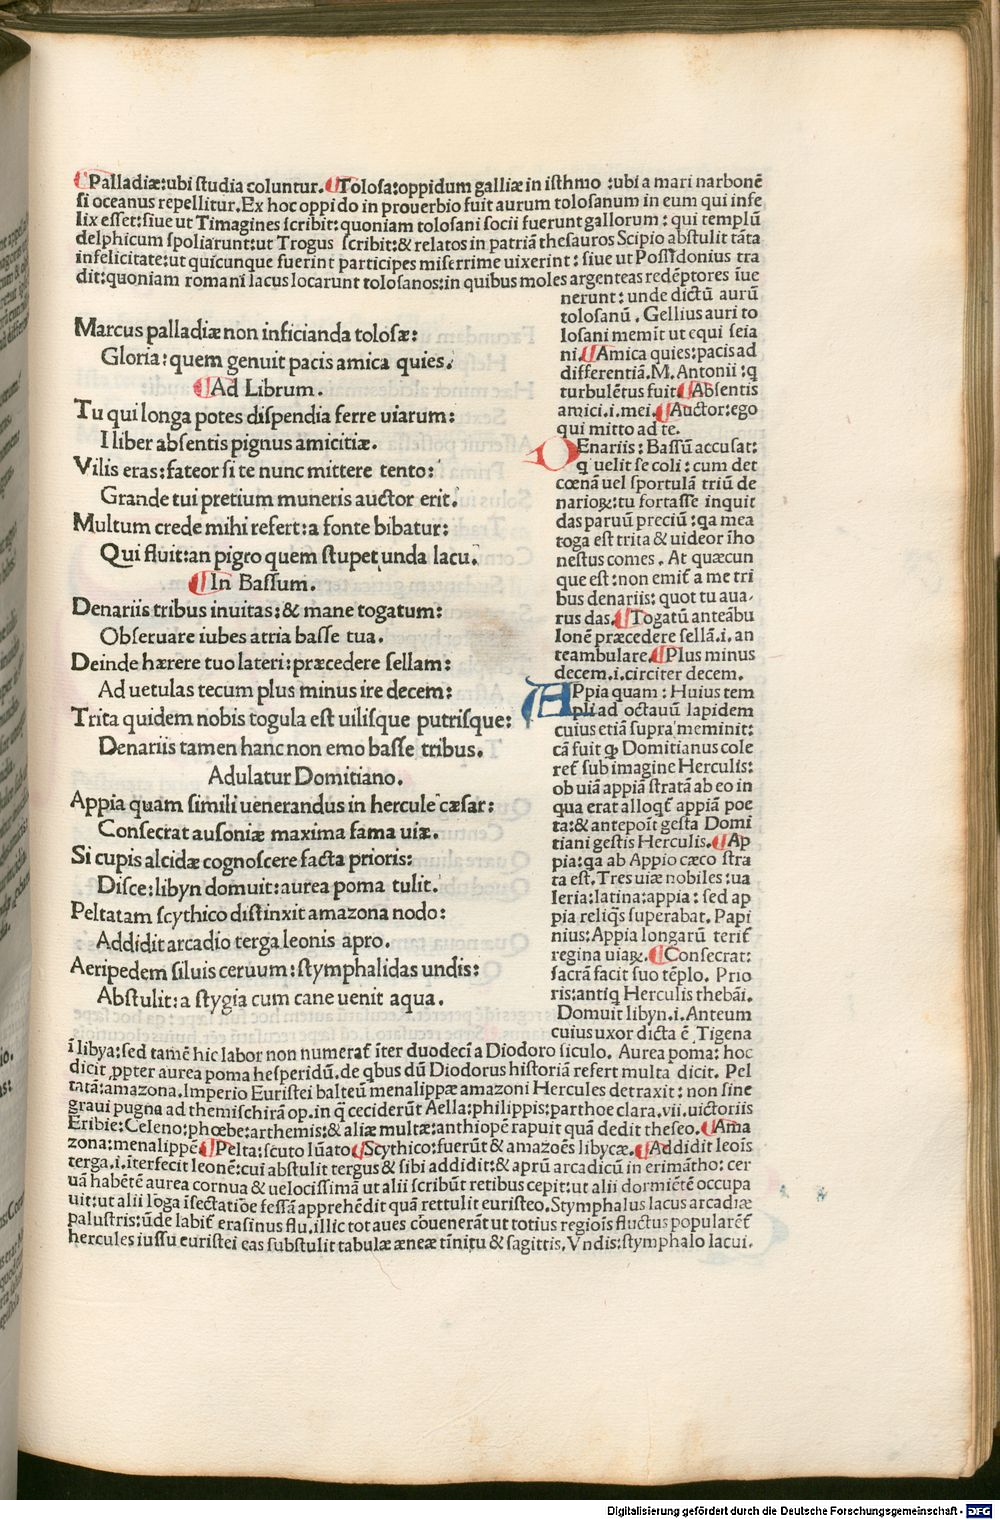 Palladiæ:ubi studia coluntur. Tolosa:oppidum galliæ in isthmo :ubi a mari narbonē
si oceanus repellitur. Ex hoc oppido in prouerbio fuit aurum tolosanum in eum qui infe
lix esset:siue ut Timagines scribit:quoniam tolosani socii fuerunt gallorum : qui templū
delphicum spoliarunt:ut Trogus scribit:& relatos in patriā thesauros Scipio abstulit tāta
infelicitate:ut quicunque fuerint participes miserrime uixerint : siue ut Possidonius tra
dit:quoniam romani lacus locarunt tolosanos:in quibus moles argenteas redēptores īue
nerunt : unde dictū aurū
tolosanū . Gellius auri to
losani memit ut equi seia
ni. Amica quies:pacis ad
differentiā. M. Antonii :q
turbulētus fuit. Absentis
amici.i.mei. Auctor:ego
qui mitto ad te.
Marcus palladiæ non inficianda tolosæ:
Gloria: quem genuit pacis amica quies.
Ad Librum.
Tu qui longa potes dispendia ferre uiarum:
I liber absentis pignus amicitiæ.
Vilis eras:fateor si te nunc mittere tento:
Grande tui pretium muneris auctor erit.
Multum crede mihi refert:a fonte bibatur:
Qui fluit:an pigro quem stupet unda lacu.
In Bassum.
Denariis tribus inuitas:& mane togatum:
Obseruare iubes atria basse tua.
Deinde hærere tuo lateri:præcedere sellam:
Ad uetulas tecum plus minus ire decem:
Trita quidem nobis togula est uilisque putrisque:
Denariis tamen hanc non emo basse tribus.
Adulatur Domitiano.
Appia quam simili uenerandus in hercule cæsar:
Consecrat ausoniæ maxima fama uiæ.
Si cupis alcidæ cognoscere facta prioris:
Disce:libyn domuit:aurea poma tulit.
Peltatam scythico distinxit amazona nodo:
Addidit arcadio terga leonis apro.
Aeripedem siluis ceruum:stymphalidas undis:
Abstulit:a stygia cum cane uenit aqua.
DEnariis : Bassū accusat:
q uelit se coli : cum det
cœnā uel sportulā triū de
narioꝝ:tu fortasse inquit
das paruū preciū :qa mea
toga est trita & uideor īho
nestus comes . At quæcun
que est:non emit̄ a me tri
bus denariis: quot tu aua
rus das. Togatū anteābu
lonē præcedere sellā.i. an
teambulare. Plus minus
decem.i.circiter decem.
APpia quam : Huius tem
pli ad octauū lapidem
cuius etiā supra meminit:
cā fuit ꝙ Domitianus cole
ret̄ sub imagine Herculis:
ob uiā appiā stratā ab eo in
qua erat alloqt̄ appiā poe
ta:& antepoit gesta Domi
tiani gestis Herculis. Ap
pia:qa ab Appio cæco stra
ta est. Tres uiæ nobiles :ua
leria:latina:appia : sed ap
pia reliqs superabat. Papi
nius:Appia longarū terit̄
regina uiaꝝ. Consecrat:
sacrā facit suo tēplo. Prio
ris:antiq Herculis thebāi.
Domuit libyn.i. Anteum
cuius uxor dicta ē Tigena
ī libya:sed tamē hic labor non numerat̄ īter duodeci a Diodoro siculo. Aurea poma: hoc
dicit ꝓpter aurea poma hesperidū.de qbus dū Diodorus historiā refert multa dicit. Pel
tatā:amazona.Imperio Euristei balteū menalippæ amazoni Hercules detraxit : non sine
graui pugna ad themischirā op.in q̄ ceciderūt Aella:philippis:parthoe clara.vii.uictoriis
Eribie:Celeno:phœbe:arthemis:& aliæ multæ:anthiopē rapuit quā dedit theseo. Ama
zona:menalippē Pelta:scuto lūato Scythico:fuerūt & amazoēs libycæ. Addidit leois
terga.i.iterfecit leonē:cui abstulit tergus & sibi addidit:& aprū arcadicū in erimātho: cer
uā habētē aurea cornua & uelocissimā ut alii scribūt retibus cepit:ut alii dormiētē occupa
uit:ut alii lōga īsectatiōe fessā apprehēdit quā rettulit euristeo. Stymphalus lacus arcadiæ
palustris:ūde labit̄ erasinus flu.illic tot aues cōuenerāt ut totius regiois fluctus popularēt̄
hercules iussu euristei eas substulit tabulæ æneæ tinitu & sagittis. Vndis:stymphalo lacui.
Digitalisierung gefördert durch die Deutsche Forschungsgemeinschaft - DFG